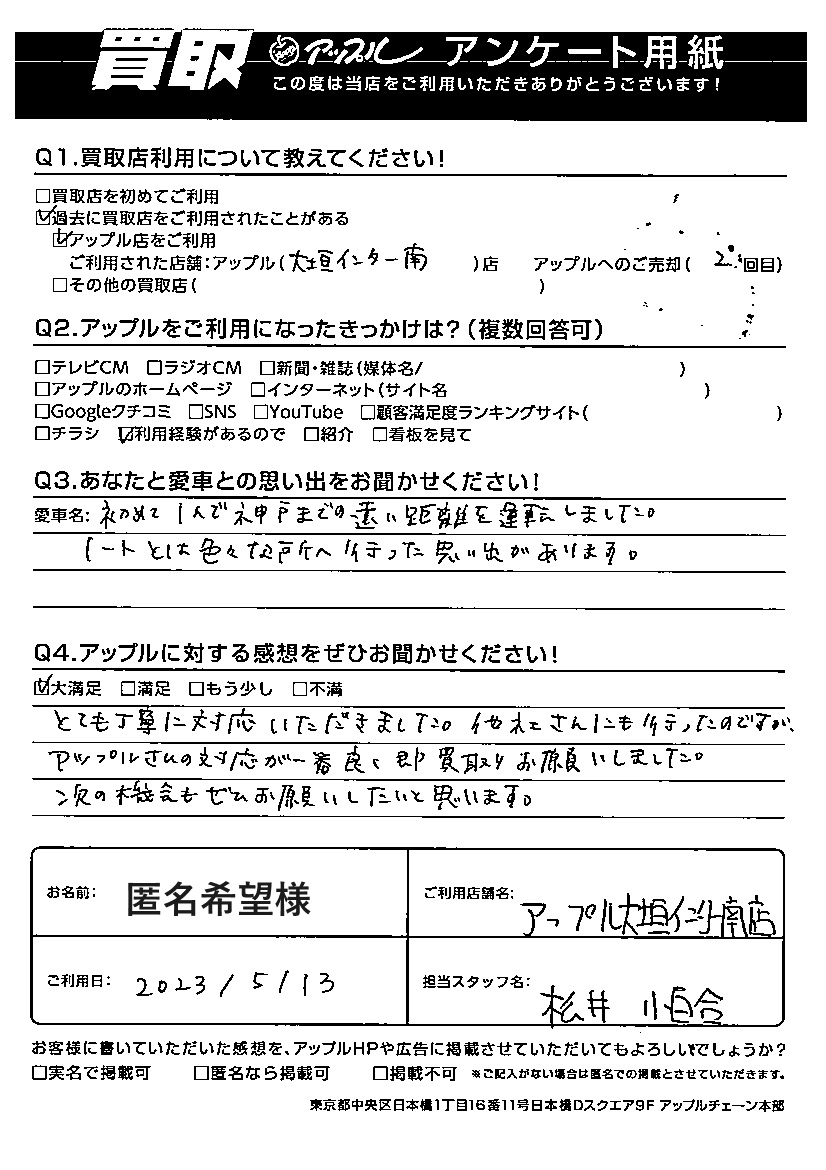 買取 アップル アンケート用紙
この度は当店をご利用いただきありがとうございます!
Q1.買取店利用について教えてください!
□買取店を初めてご利用
☑過去に買取店をご利用されたことがある
☑アップル店をご利用
ご利用された店舗:アップル(大垣インター南)店 アップルへのご売却(2回目)
□その他の買取店( )
Q2.アップルをご利用になったきっかけは?(複数回答可)
□テレビCM □ラジオCM □新聞・雑誌(媒体名/ )
□アップルのホームページ □インターネット(サイト名 )
□Googleクチコミ □SNS □YouTube □顧客満足度ランキングサイト( )
□チラシ ☑利用経験があるので □紹介 □看板を見て
Q3.あなたと愛車との思い出をお聞かせください!
愛車名: 初めて1人で神戸までの遠い距離を運転しました。
ノートとは色々な所へ行った思い出があります。
Q4.アップルに対する感想をぜひお聞かせください!
☑大満足 □満足 □もう少し □不満
とても丁寧に対応いただきました。他社さんにも行ったのですが、
アップルさんの対応が一番良く即買取りお願いしました。
次の機会もぜひお願いしたいと思います。
お名前: 匿名希望様 ご利用店舗名: アップル大垣インター南店
ご利用日: 2023/5/13 担当スタッフ名: 松井 小百合
お客様に書いていただいた感想を、アップルHPや広告に掲載させていただいてもよろしいでしょうか?
□実名で掲載可 □匿名なら掲載可 □掲載不可 ※ご記入がない場合は匿名での掲載とさせていただきます。
東京都中央区日本橋1丁目16番11号日本橋Dスクエア9F アップルチェーン本部